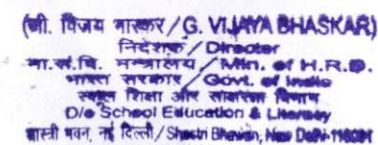 (जी. विजय भास्कर/G. VIJAYA BHASKAR)
निदेशक/Director
मा.सं.वि. मन्त्रालय/Min. of H.R.D.
भारत सरकार/Govt. of India
स्कूल शिक्षा और साक्षरता विभाग
D/o School Education & Literacy
शास्त्री भवन, नई दिल्ली/Shastri Bhawan, New Delhi-110001